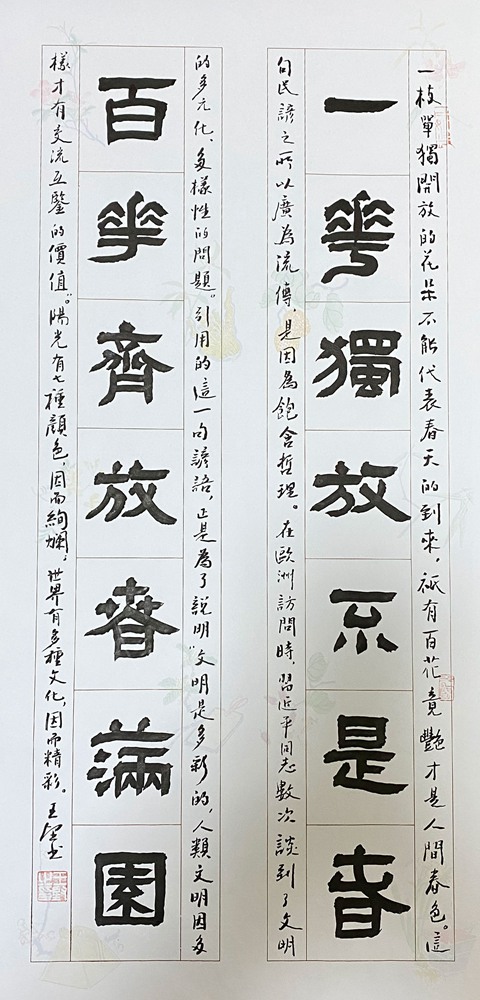 一枝單獨開放的花朵不能代表春天的到來，祗有百花竟艷才是人間春色。這
一華獨放不是春
句民諺之所以廣為流傳，是因為飽含哲理。在歐洲訪問時，習近平同志數次談到了文明
的多元化、多樣性的問題"引用的這一句諺語，正是為了說明"文明是多彩的，人類文明因多
百華齊放春滿園
樣才有交流互鑒的價值。"陽光有七種顏色，因而絢爛；世界有多種文化，因而精彩。王